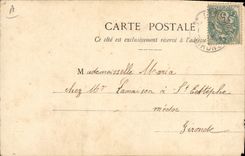 A
CARTE POSTALE
Ce côté est exclusivement réservé à l'adresse
5
Mademoiselle Maria
chez Mr Lamaison à St Estèphe
médoc
Gironde